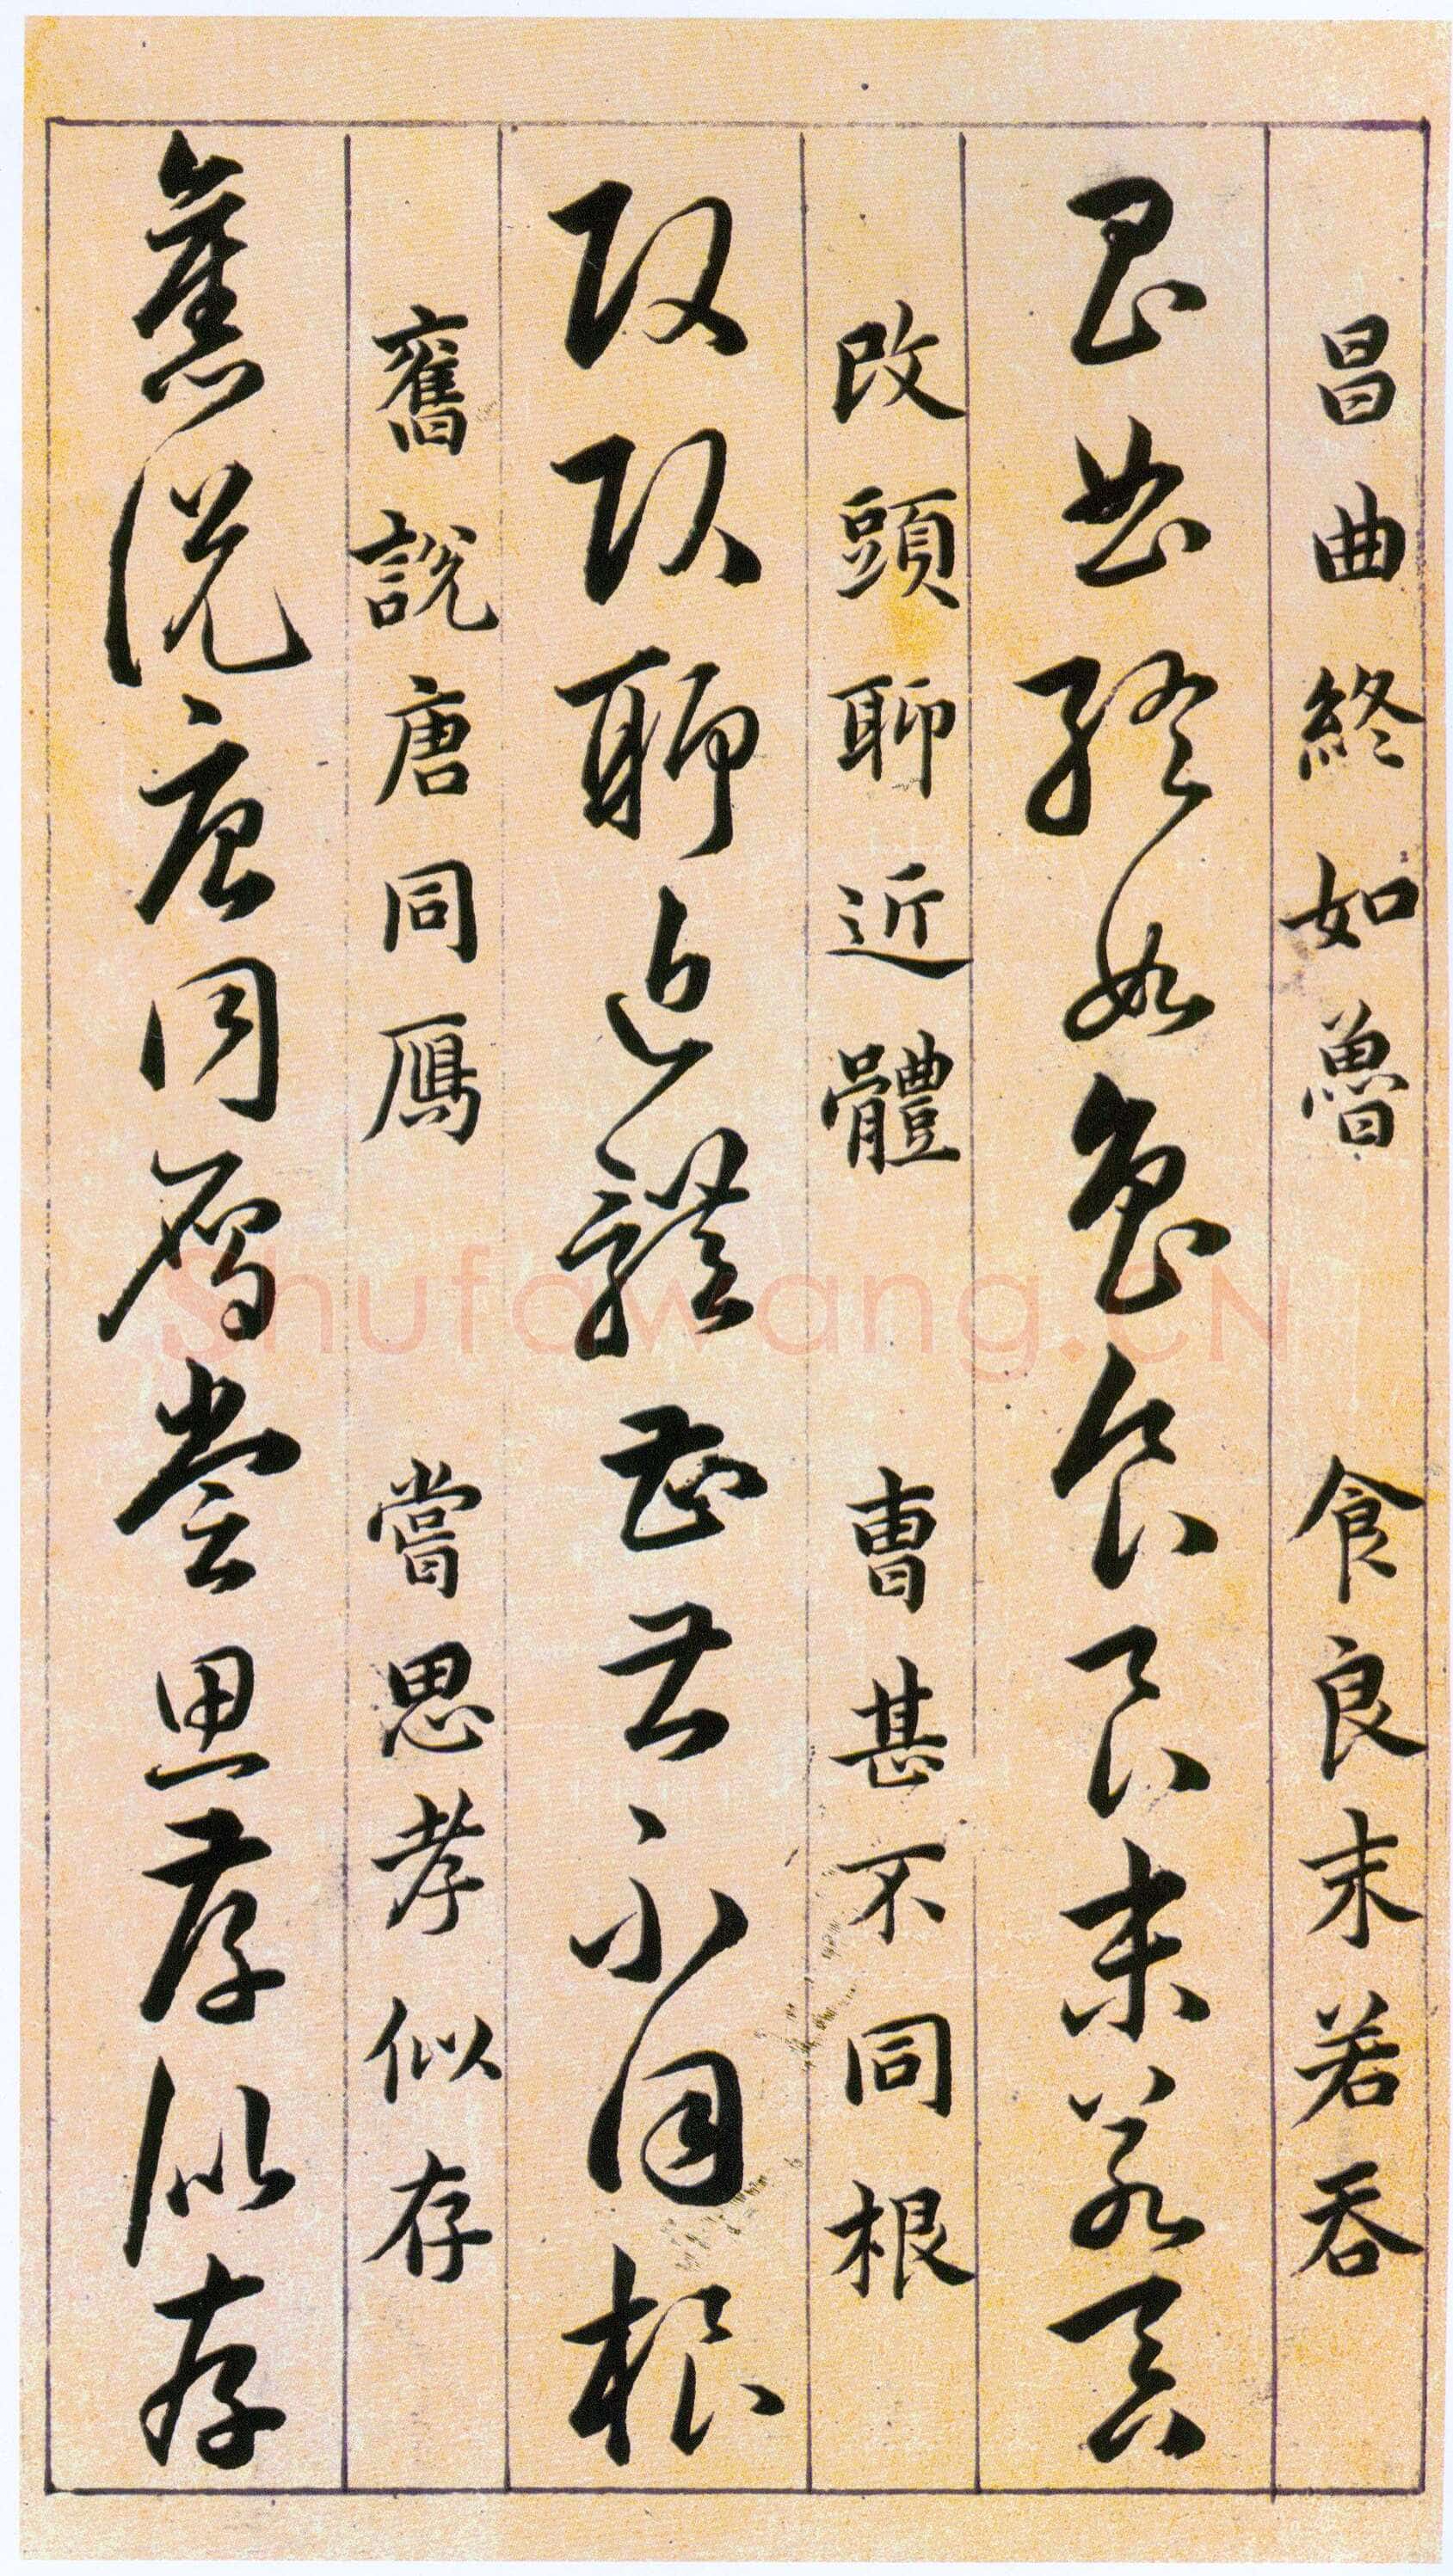 昌曲終如魯 食良末若吞
昌曲終如魯食良末若吞
改頭聊近體 曹甚不同根
改頭聊近體曹甚不同根
舊說唐同鴈 嘗思孝似存
舊說唐同鴈嘗思孝似存
Shufawang.CN